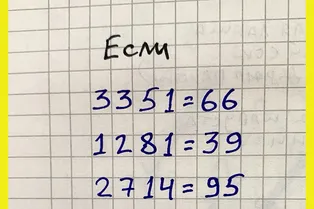 Если
3351=66
1281=39
2714=95